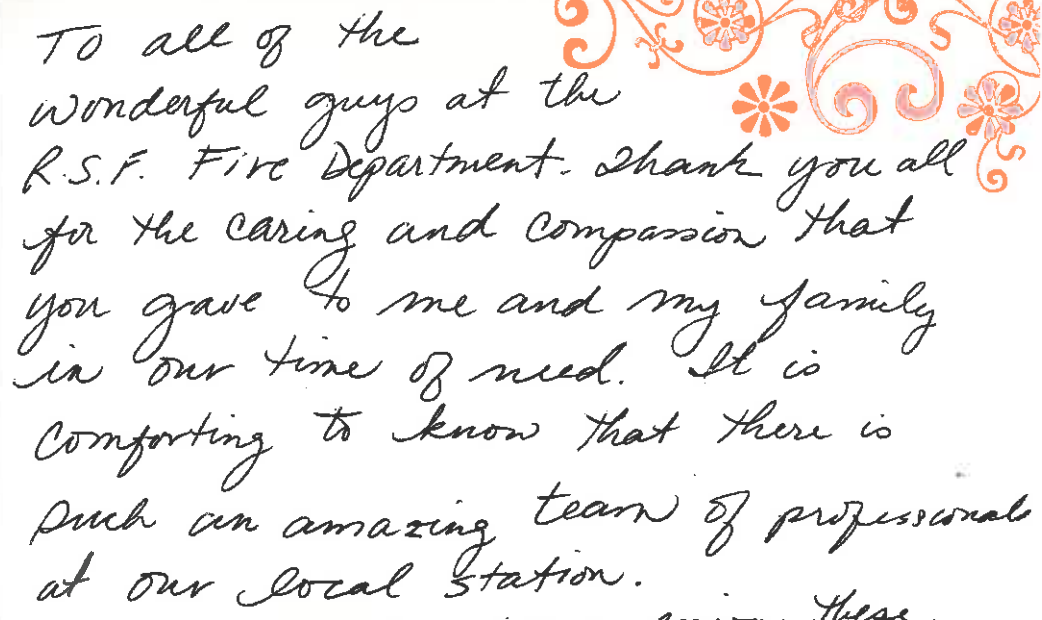 To all of the
wonderful guys at the
R.S.F. Fire Department. Thank you all
for the caring and compassion that
you gave to me and my family
in our time of need. It is
comforting to know that there is
such an amazing team of professionals
at our local station.
these